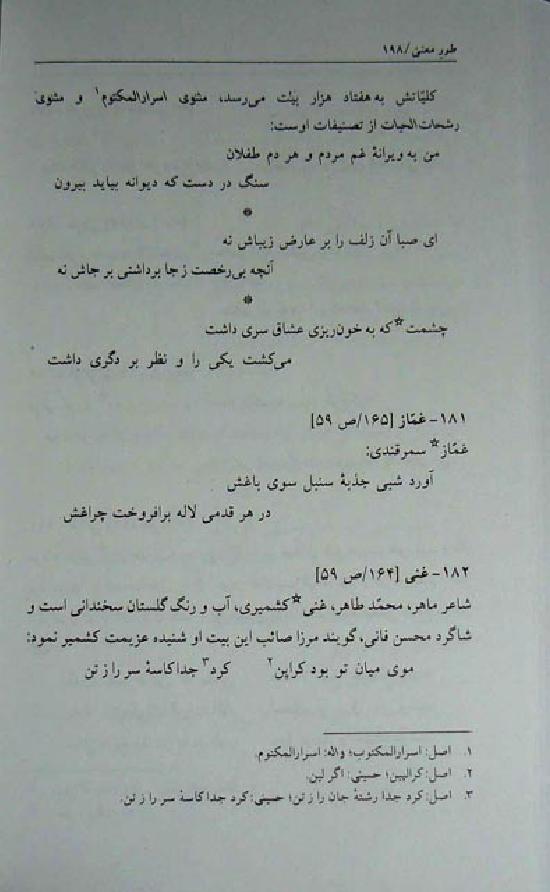 طور معنی/۱۹۸
کلیّاتش به هفتاد هزار بیت می‌رسد، مثنوی اسرارالمکتوم۱ و مثنوی
رشحات‌الحیات از تصنیفات اوست:
من به ویرانۀ غم مردم و هر دم طفلان
سنگ در دست که دیوانه بیاید بیرون
*
ای صبا آن زلف را بر عارض زیباش نه
آنچه بی‌رخصت ز جا برداشتی بر جاش نه
*
چشمت☆ که به خون‌ریزی عشاق سری داشت
می‌کشت یکی را و نظر بر دگری داشت
۱۸۱- غمّاز [۱۶۵/ص ۵۹]
غمّاز☆ سمرقندی:
آورد شبی جذبۀ سنبل سوی باغش
در هر قدمی لاله برافروخت چراغش
۱۸۲- غنی [۱۶۴/ص ۵۹]
شاعر ماهر، محمّد طاهر، غنی☆ کشمیری، آب و رنگ گلستان سخندانی است و
شاگرد محسن فانی، گویند مرزا صائب این بیت او شنیده عزیمت کشمیر نمود:
موی میان تو بود کراپن۲ کرد۳ جدا کاسۀ سر را ز تن
۱. اصل: اسرارالمکتوب؛ واله: اسرارالمکتوم.
۲. اصل: کرالپین؛ حسینی: اگر لبن.
۳. اصل: کرد جدا رشتۀ جان را ز تن؛ حسینی: کرد جدا کاسۀ سر را ز تن.